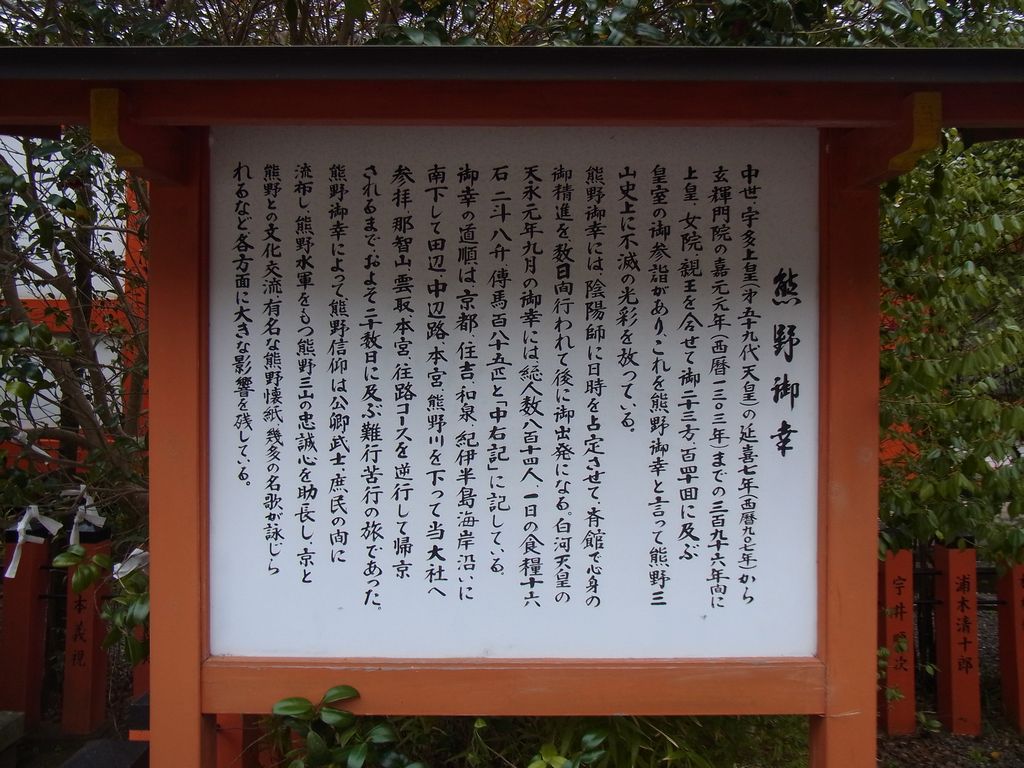 熊野御幸
中世、宇多上皇(才五十九代天皇)の延喜七年(西暦九〇七年)から
玄輝門院の嘉元元年(西暦一三〇三年)までの三百九十六年间に
上皇、女院、親王を合せて御二十三方、百四十回に及ぶ
皇室の御参詣があり、これを熊野御幸と言って熊野三
山史上に不滅の光彩を放っている。
熊野御幸には陰陽師に日時を占定させて、斉館で心身の
御精進を数日间行われて後に御出発になる。白河天皇の
天永元年九月の御幸には総人数八百十四人、一日の食糧十六
石二斗八升、傳馬百八十五匹と「中右記」に記している。
御幸の道順は、京都、住吉、和泉、紀伊半島海岸沿いに
南下して田辺、中辺路、本宮、熊野川を下って当大社へ
参拝、那智山、雲取、本宮、往路コースを逆行して帰京
されるまで、およそ二十数日に及ぶ難行苦行の旅であった。
熊野御幸によって、熊野信仰は公卿、武士、庶民の间に
流布し、熊野水軍をもつ熊野三山の忠誠心を助長し、京と
熊野との文化交流、有名な熊野懐紙、幾多の名歌が詠じら
れるなど各方面に大きな影響を残している。
本義視
宇井
次
浦木清十郎